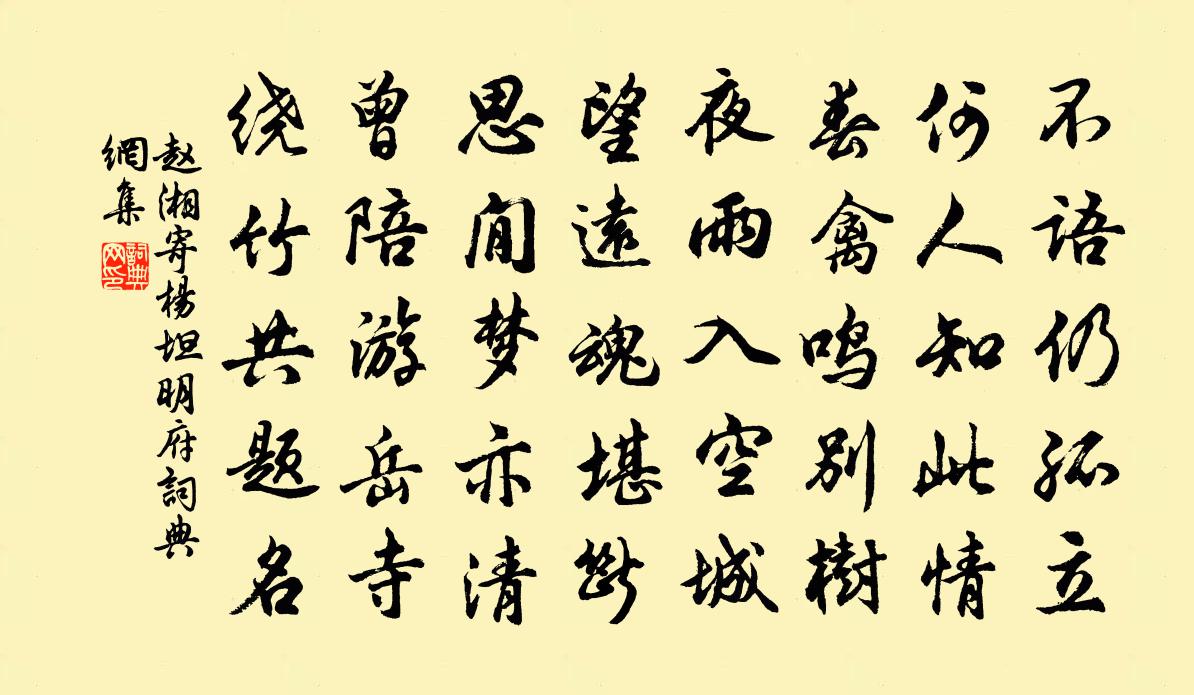 不语仍孤立
何人知此情
春禽鸣别樹
夜雨入空城
望遠魂堪断
思闲梦亦清
曾陪游岳寺
绕竹共题名
赵湘寄楊坦明府詞典
網集
詞典
网印